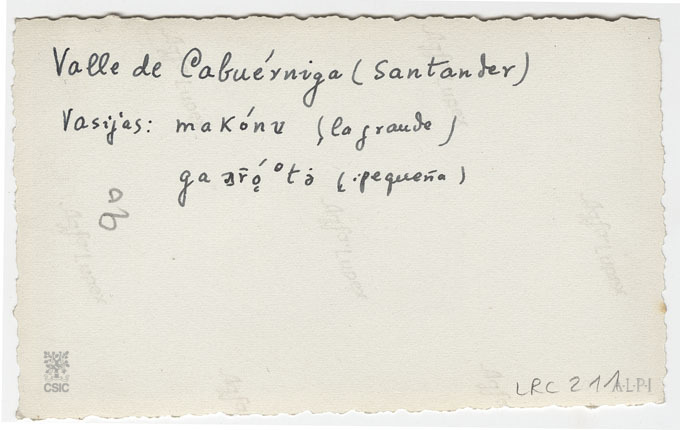 Valle de Cabuérniga (Santander)
Vasijas: makónu (la grande)
(pequeña)
ab
CSIC
LRC 211
ALPI